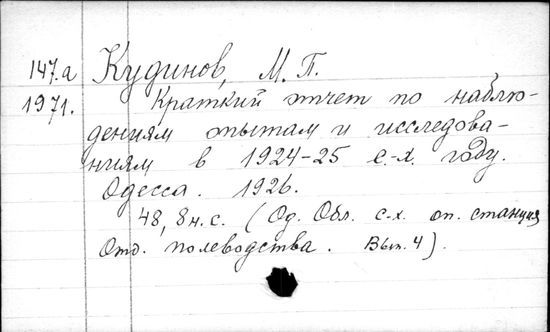 147.a Кудинов, М. П.
1971. Краткий отчет по наблю-
дениям опытам и исследова-
ниям в 1924-25 с.-х. году.
Одесса. 1926.
48, 8 н. с. (Од. Обл. с-х. оп. станция
Отд. полеводства. Вып. 4).